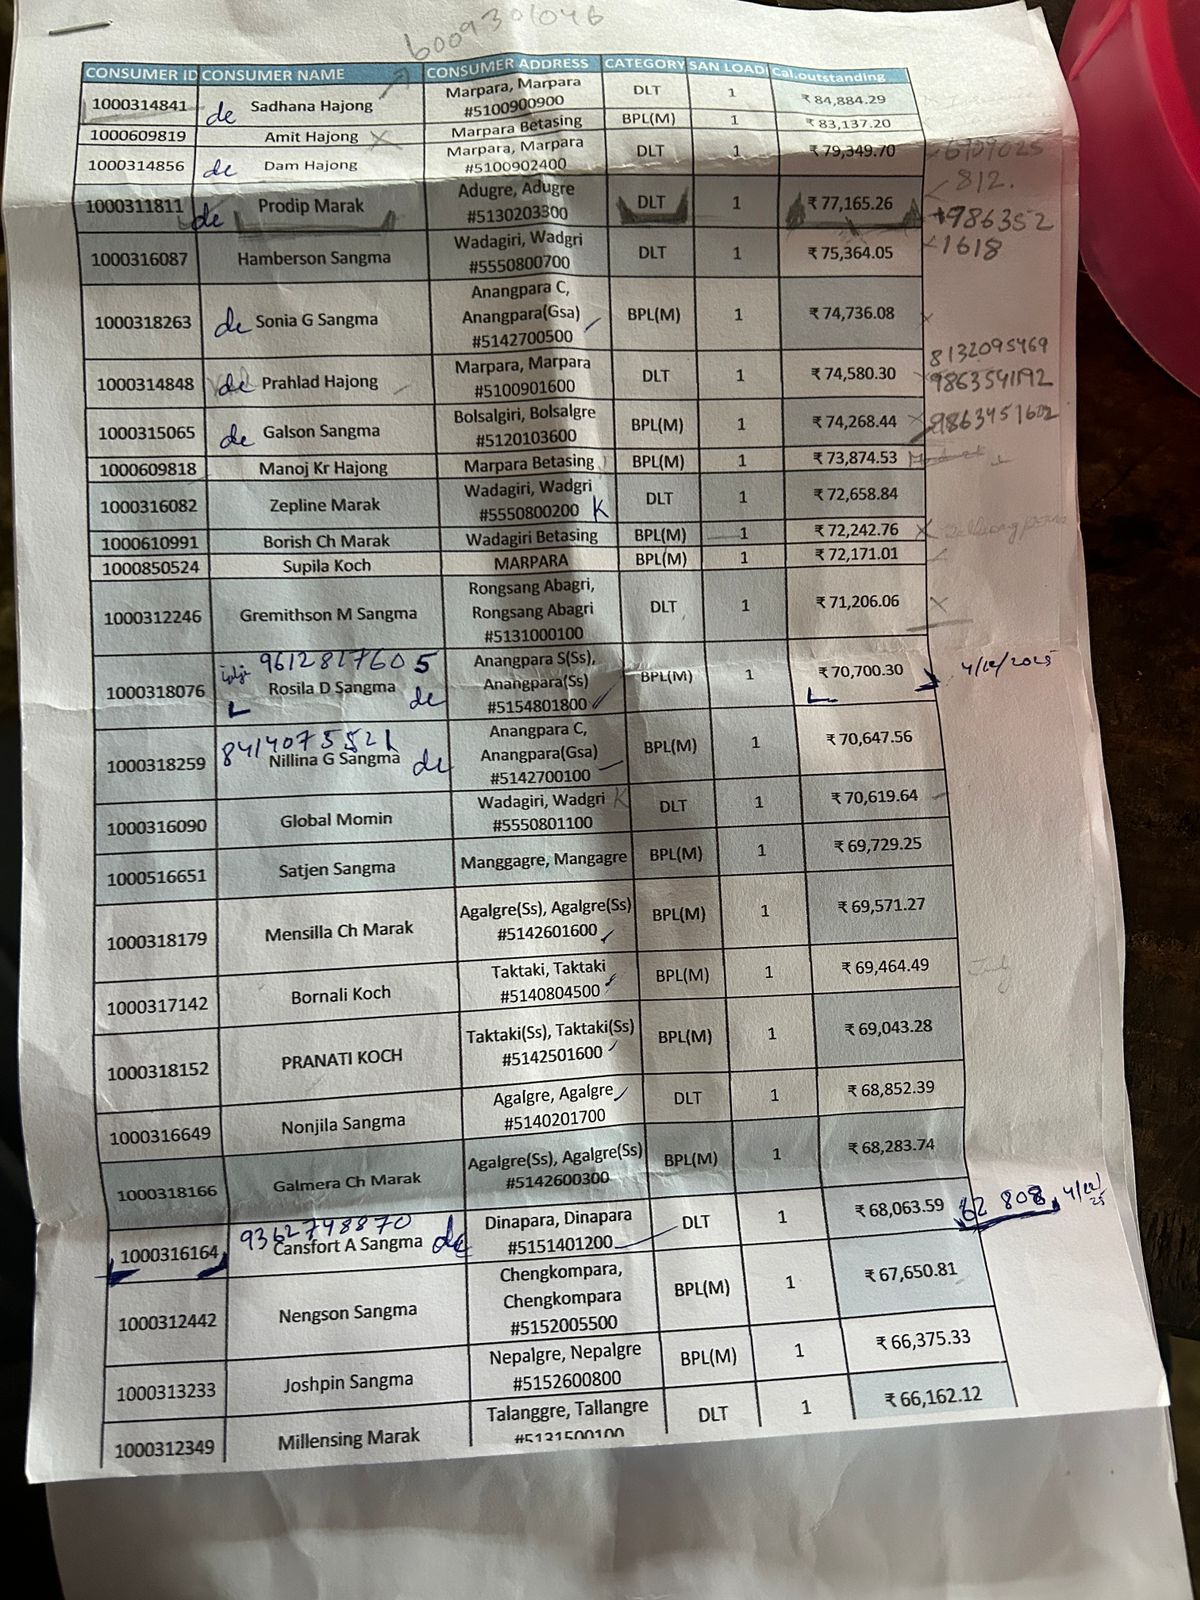 6009301046
CONSUMER ID CONSUMER NAME CONSUMER ADDRESS CATEGORY SAN LOAD Cal.outstanding
1000314841 de Sadhana Hajong Marpara, Marpara #5100900900 DLT 1 ₹ 84,884.29
1000609819 Amit Hajong Marpara Betasing BPL(M) 1 ₹ 83,137.20
1000314856 de Dam Hajong Marpara, Marpara #5100902400 DLT 1 ₹ 79,349.70
812.
1000311811 de Prodip Marak Adugre, Adugre #5130203300 DLT 1 ₹ 77,165.26 986352
1000316087 Hamberson Sangma Wadagiri, Wadgri #5550800700 DLT 1 ₹ 75,364.05 1618
1000318263 de Sonia G Sangma Anangpara C, Anangpara(Gsa) #5142700500 BPL(M) 1 ₹ 74,736.08
8132095469
1000314848 de Prahlad Hajong Marpara, Marpara #5100901600 DLT 1 ₹ 74,580.30
1000315065 de Galson Sangma Bolsalgiri, Bolsalgre #5120103600 BPL(M) 1 ₹ 74,268.44 9863451602
1000609818 Manoj Kr Hajong Marpara Betasing BPL(M) 1 ₹ 73,874.53
1000316082 Zepline Marak Wadagiri, Wadgri #5550800200 K DLT 1 ₹ 72,658.84
1000610991 Borish Ch Marak Wadagiri Betasing BPL(M) 1 ₹ 72,242.76
1000850524 Supila Koch MARPARA BPL(M) 1 ₹ 72,171.01
1000312246 Gremithson M Sangma Rongsang Abagri, Rongsang Abagri #5131000100 DLT 1 ₹ 71,206.06
9612817605
1000318076 Rosila D Sangma de Anangpara S(Ss), Anangpara(Ss) #5154801800 BPL(M) 1 ₹ 70,700.30 4/12/2025
8414075521
1000318259 Nillina G Sangma de Anangpara C, Anangpara(Gsa) #5142700100 BPL(M) 1 ₹ 70,647.56
1000316090 Global Momin Wadagiri, Wadgri K #5550801100 DLT 1 ₹ 70,619.64
1000516651 Satjen Sangma Manggagre, Mangagre BPL(M) 1 ₹ 69,729.25
1000318179 Mensilla Ch Marak Agalgre(Ss), Agalgre(Ss) #5142601600 BPL(M) 1 ₹ 69,571.27
1000317142 Bornali Koch Taktaki, Taktaki #5140804500 BPL(M) 1 ₹ 69,464.49
1000318152 PRANATI KOCH Taktaki(Ss), Taktaki(Ss) #5142501600 BPL(M) 1 ₹ 69,043.28
1000316649 Nonjila Sangma Agalgre, Agalgre #5140201700 DLT 1 ₹ 68,852.39
1000318166 Galmera Ch Marak Agalgre(Ss), Agalgre(Ss) #5142600300 BPL(M) 1 ₹ 68,283.74
9362748870
1000316164 Cansfort A Sangma de Dinapara, Dinapara #5151401200 DLT 1 ₹ 68,063.59 62 808 4/12/25
1000312442 Nengson Sangma Chengkompara, Chengkompara #5152005500 BPL(M) 1 ₹ 67,650.81
1000313233 Joshpin Sangma Nepalgre, Nepalgre #5152600800 BPL(M) 1 ₹ 66,375.33
1000312349 Millensing Marak Talanggre, Tallangre #5131500100 DLT 1 ₹ 66,162.12